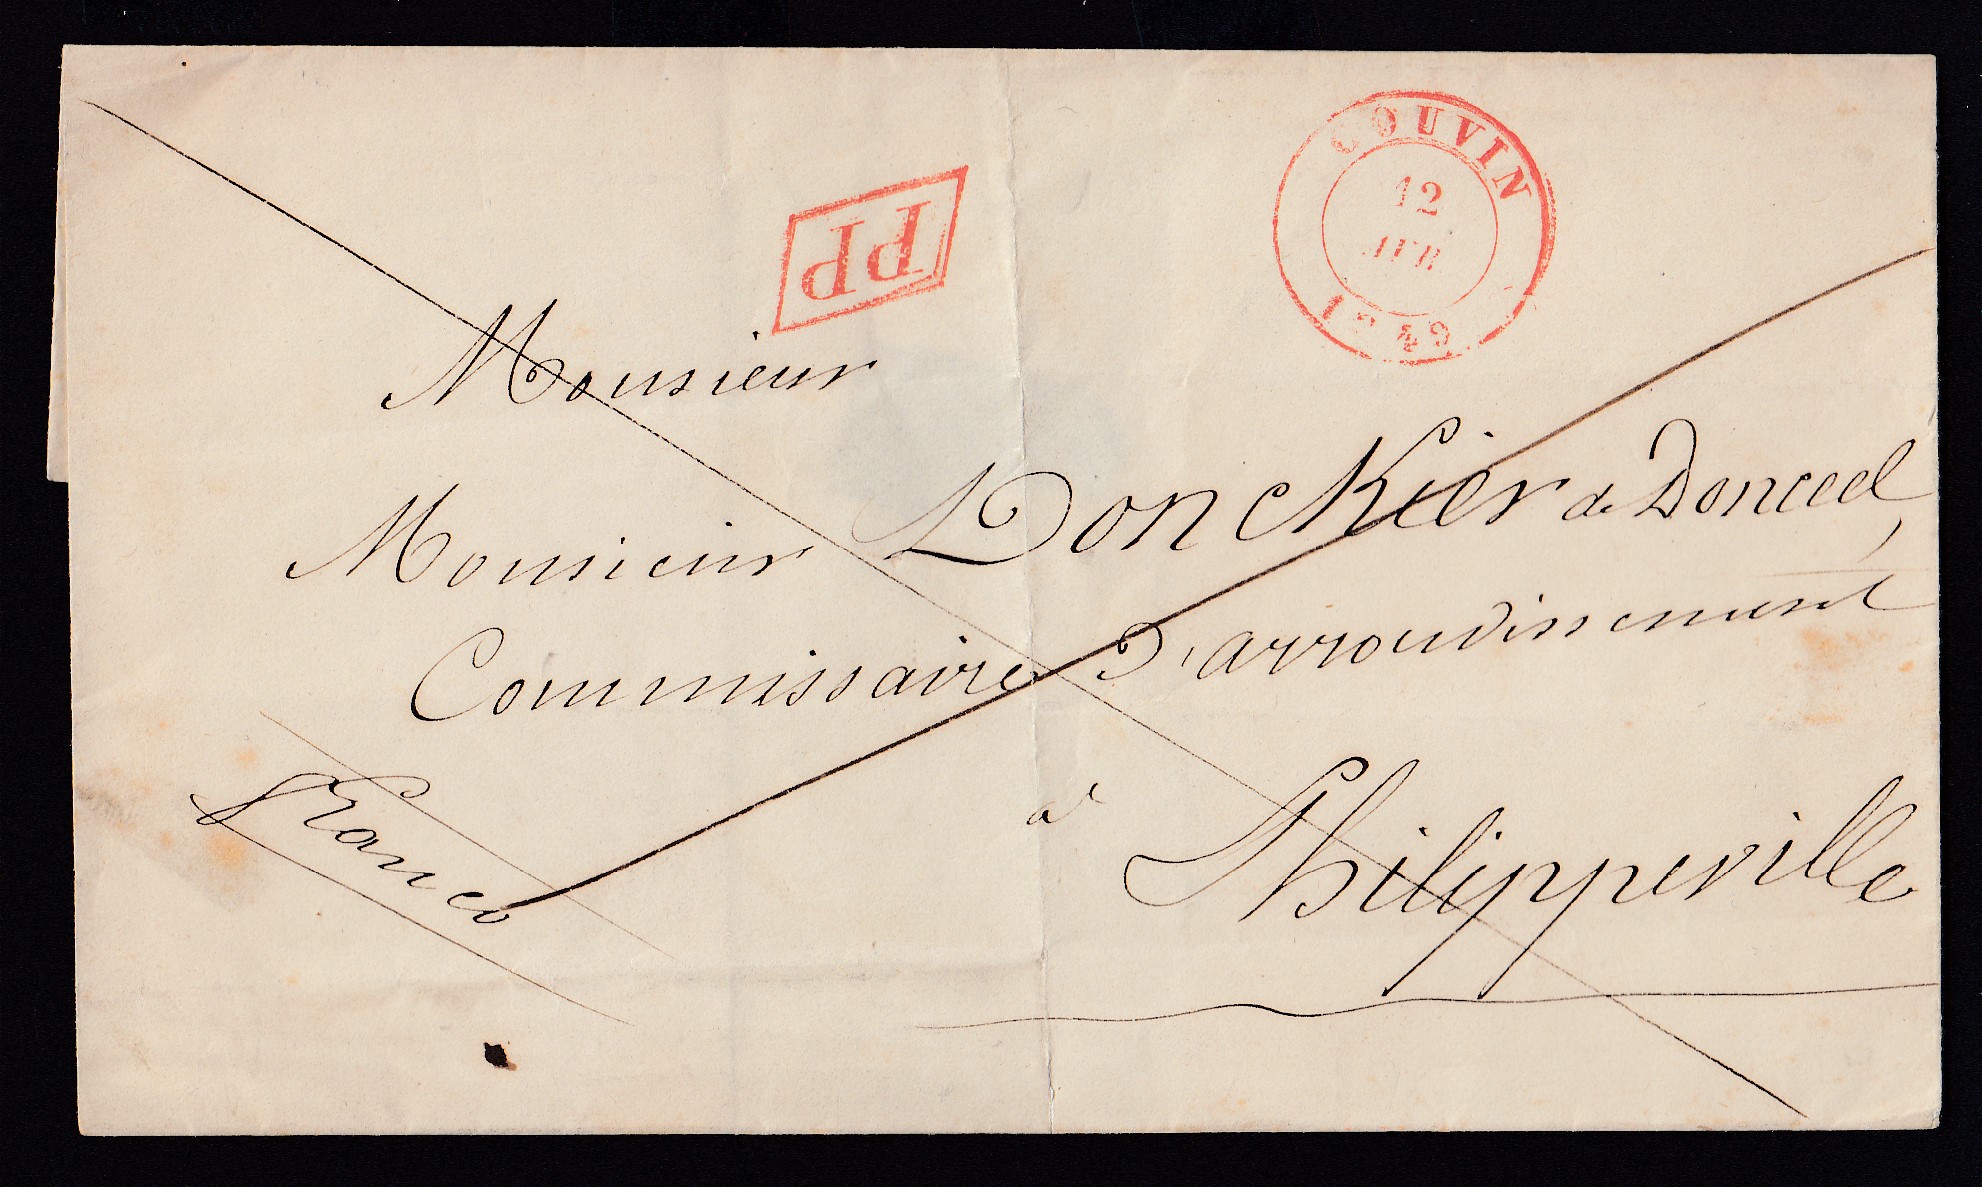 COUVIN
12
AVR
1849
PP
Monsieur
Monsieur Donckier de Donceel,
Commissaire d'arrondissement
à Philippeville
Franco